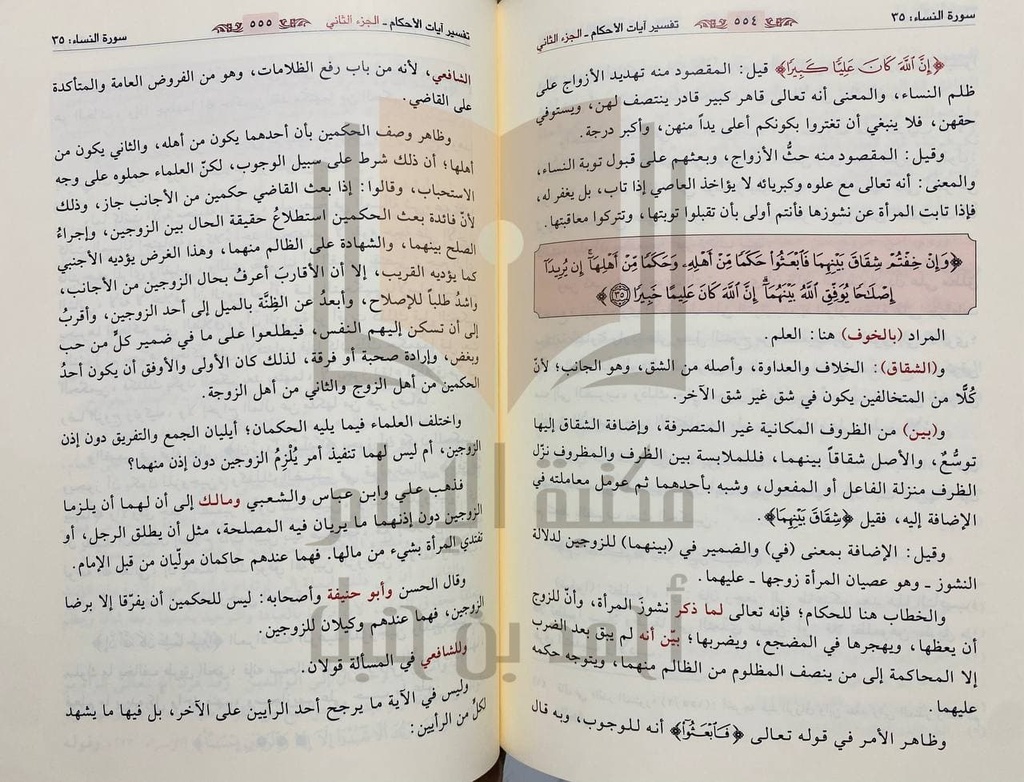 سورة النساء: ٣٥
٥٥٤
تفسير آيات الأحكام - الجزء الثاني
﴿إِنَّ اللَّهَ كَانَ عَلِيًّا كَبِيرًا﴾ قيل: المقصود منه تهديد الأزواج على
ظلم النساء، والمعنى أنه تعالى قاهر كبير قادر ينتصف لهن، ويستوفي
حقهن، فلا ينبغي أن تغتروا بكونكم أعلى يداً منهن، وأكبر درجة.
وقيل: المقصود منه حثُّ الأزواج، وبعثهم على قبول توبة النساء،
والمعنى: أنه تعالى مع علوه وكبريائه لا يؤاخذ العاصي إذا تاب، بل يغفر له،
فإذا تابت المرأة عن نشوزها فأنتم أولى بأن تقبلوا توبتها، وتتركوا معاقبتها.
﴿وَإِنْ خِفْتُمْ شِقَاقَ بَيْنِهِمَا فَابْعَثُوا حَكَمًا مِّنْ أَهْلِهِ وَحَكَمًا مِّنْ أَهْلِهَا إِن يُرِيدَا
إِصْلَاحًا يُوَفِّقِ اللَّهُ بَيْنَهُمَا إِنَّ اللَّهَ كَانَ عَلِيمًا خَبِيرًا ٣٥﴾
المراد (بالخوف) هنا: العلم.
و(الشقاق): الخلاف والعداوة، وأصله من الشق، وهو الجانب؛ لأنّ
كُلًّا من المتخالفين يكون في شق غير شق الآخر.
و(بين) من الظروف المكانية غير المتصرفة، وإضافة الشقاق إليها
توسُّعٌ، والأصل شقاقاً بينهما، فللملابسة بين الظرف والمظروف نزّل
الظرف منزلة الفاعل أو المفعول، وشبه بأحدهما ثم عومل معاملته في
الإضافة إليه، فقيل ﴿شِقَاقَ بَيْنِهِمَا﴾.
وقيل: الإضافة بمعنى (في) والضمير في (بينهما) للزوجين لدلالة
النشوز ـ وهو عصيان المرأة زوجها ـ عليهما.
والخطاب هنا للحكام؛ فإنه تعالى لما ذكر نشوزَ المرأة، وأنّ للزوج
أن يعظها، ويهجرها في المضجع، ويضربها؛ بيّن أنه لم يبق بعد الضرب
إلا المحاكمة إلى من ينصف المظلوم من الظالم منهما، ويتوجه حكمه
عليهما.
وظاهر الأمر في قوله تعالى ﴿فَابْعَثُوا﴾ أنه للوجوب، وبه قال
تفسير آيات الأحكام - الجزء الثاني
٥٥٥
سورة النساء: ٣٥
الشافعي، لأنه من باب رفع الظلامات، وهو من الفروض العامة والمتأكدة
على القاضي.
وظاهر وصف الحكمين بأن أحدهما يكون من أهله، والثاني يكون من
أهلها؛ أن ذلك شرط على سبيل الوجوب، لكنّ العلماء حملوه على وجه
الاستحباب، وقالوا: إذا بعث القاضي حكمين من الأجانب جاز، وذلك
لأنّ فائدة بعث الحكمين استطلاعُ حقيقة الحال بين الزوجين، وإجراءُ
الصلح بينهما، والشهادة على الظالم منهما، وهذا الغرض يؤديه الأجنبي
كما يؤديه القريب، إلا أن الأقاربَ أعرفُ بحال الزوجين من الأجانب،
وأشدُّ طلباً للإصلاح، وأبعدُ عن الظِنَّة بالميل إلى أحد الزوجين، وأقربُ
إلى أن تسكن إليهم النفس، فيطلعوا على ما في ضمير كلٍّ من حب
وبغض، وإرادة صحبة أو فرقة، لذلك كان الأولى والأوفق أن يكون أحدُ
الحكمين من أهل الزوج والثاني من أهل الزوجة.
واختلف العلماء فيما يليه الحكمان؛ أيليان الجمع والتفريق دون إذن
الزوجين، أم ليس لهما تنفيذ أمر يُلْزِمُ الزوجين دون إذن منهما؟
فذهب علي وابن عباس والشعبي ومالك إلى أن لهما أن يلزما
الزوجين دون إذنهما ما يريان فيه المصلحة، مثل أن يطلق الرجل، أو
تفتدي المرأة بشيء من مالها. فهما عندهم حاكمان موليّان من قبل الإمام.
وقال الحسن وأبو حنيفة وأصحابه: ليس للحكمين أن يفرّقا إلا برضا
الزوجين، فهما عندهم وكيلان للزوجين.
وللشافعي في المسألة قولان.
وليس في الآية ما يرجح أحد الرأيين على الآخر، بل فيها ما يشهد
لكلٍّ من الرأيين:
مكتبة الإمام
أحمد بن